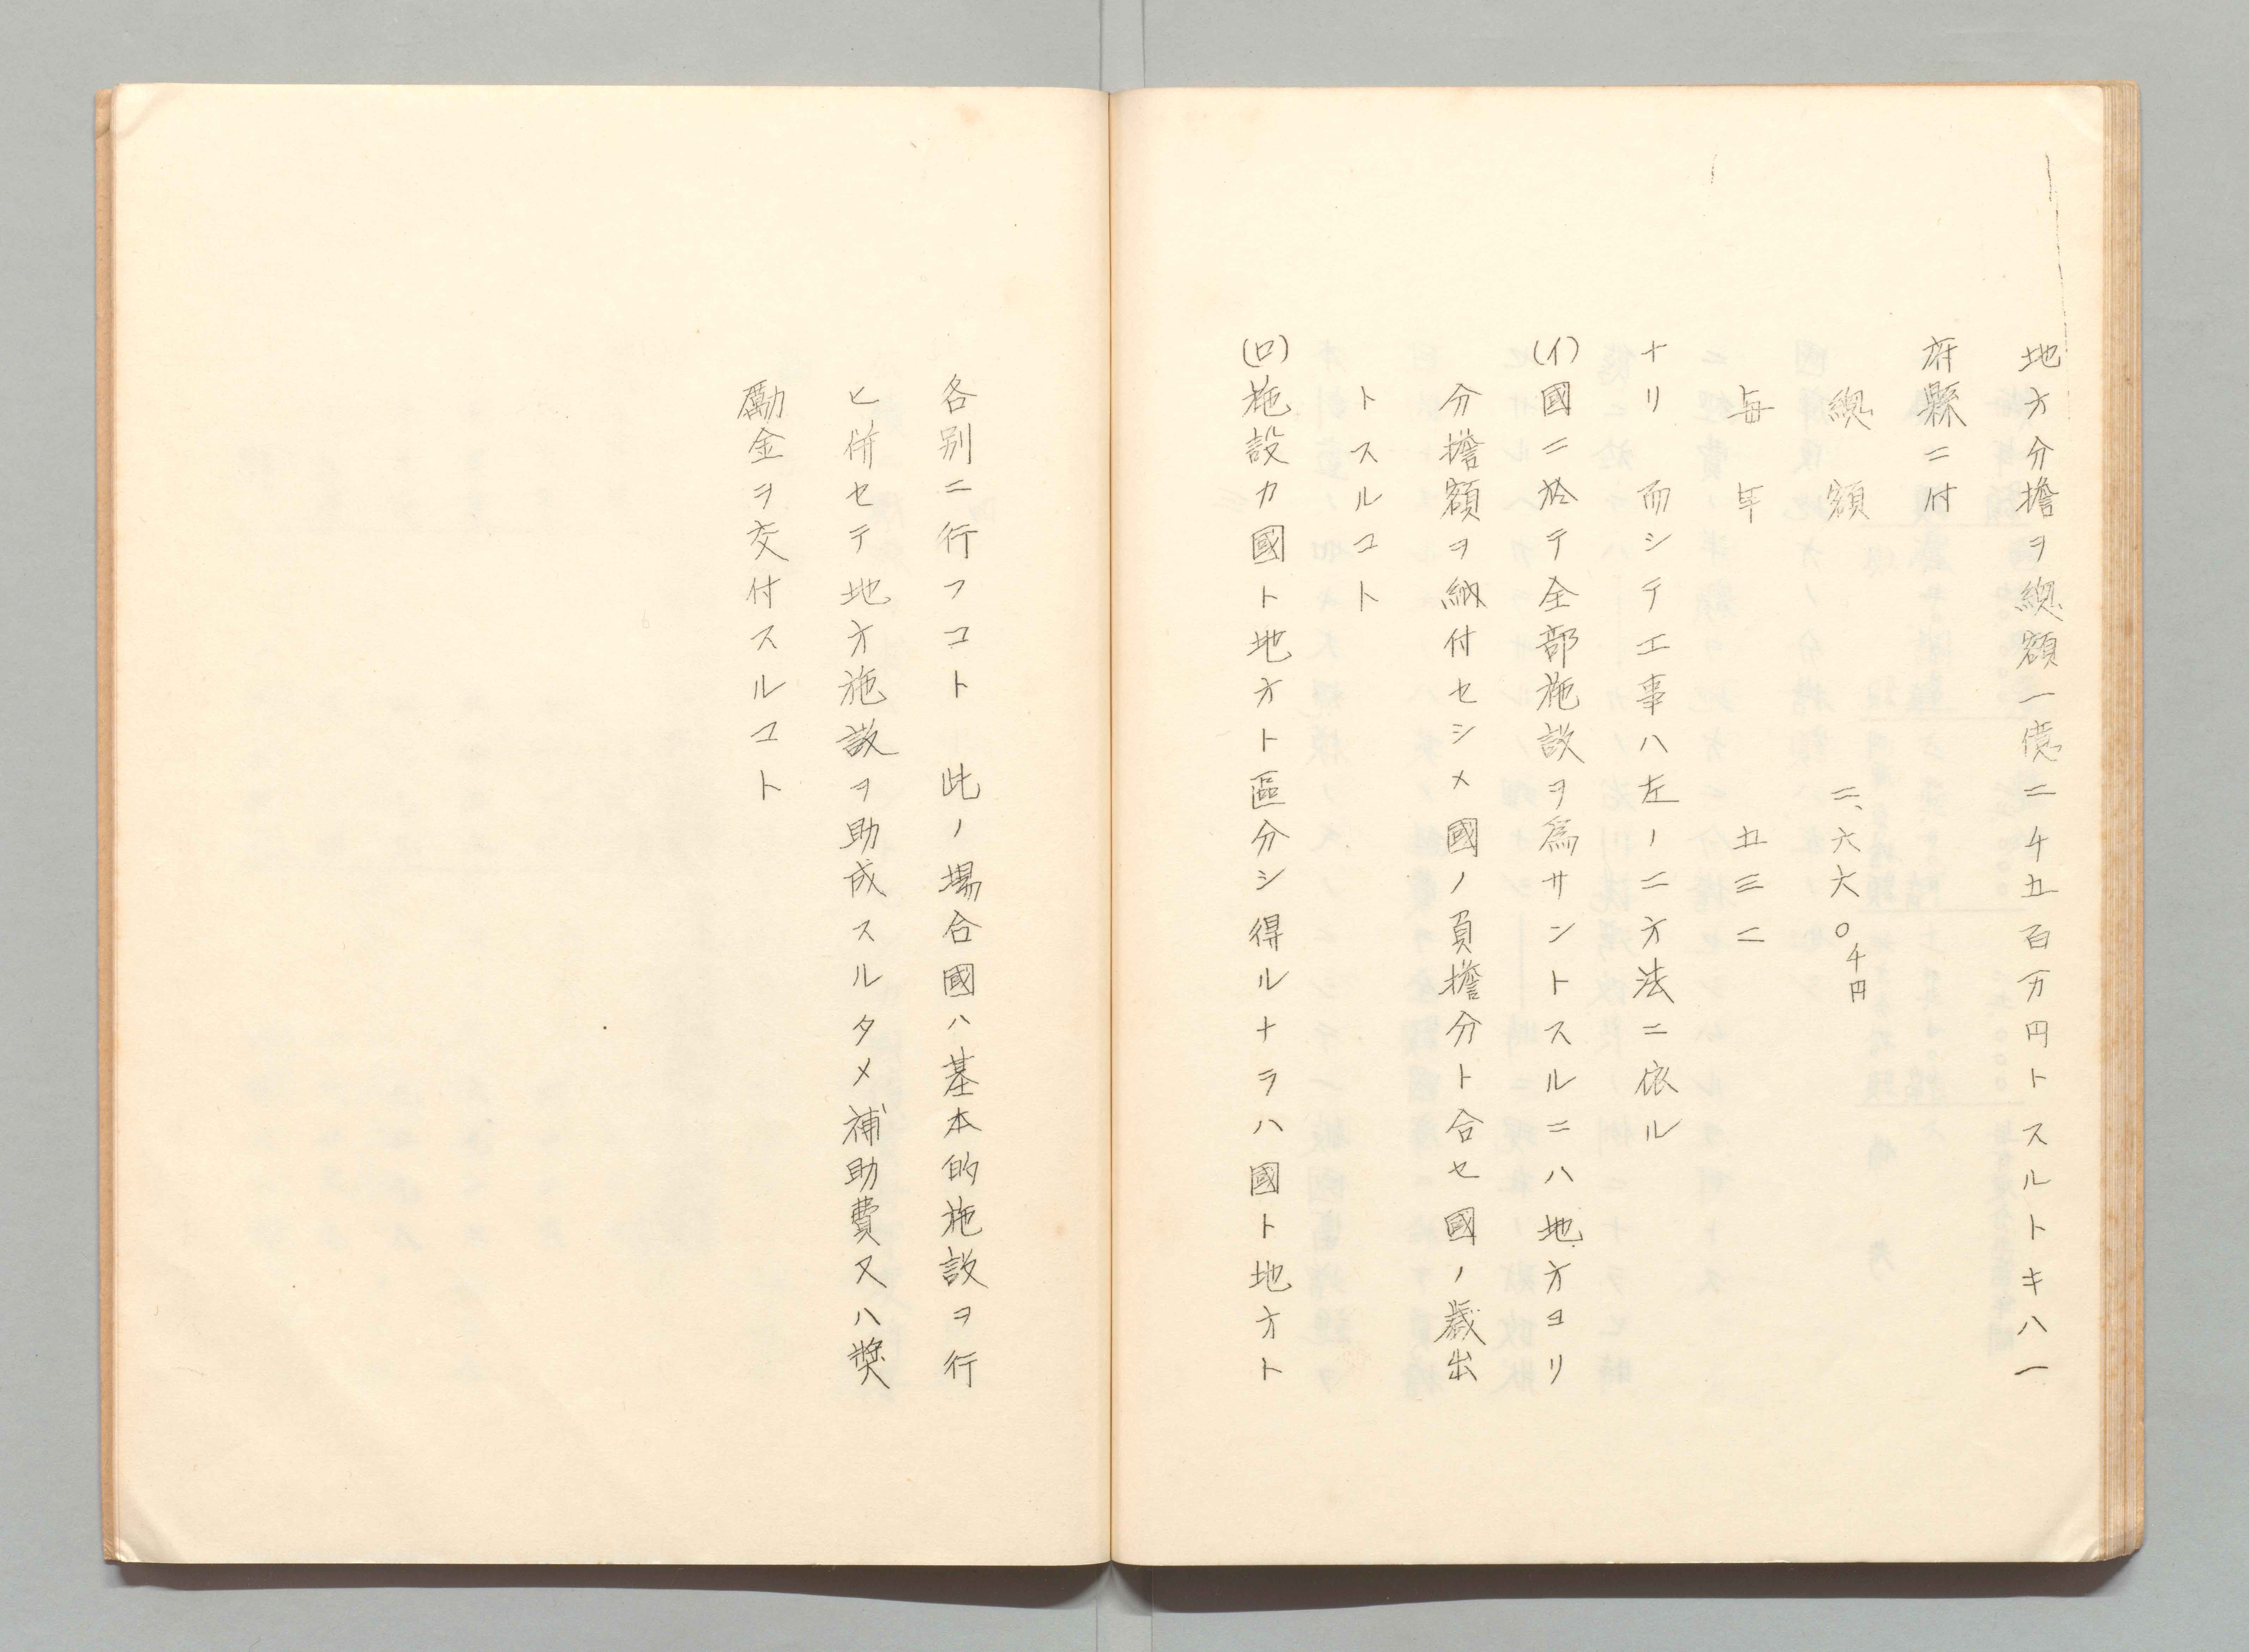 地方分擔ヲ總額一億二千五百万円トスルトキハ一
府縣ニ付
總額 二、六六〇千円
毎年 五三二
ナリ 而シテ工事ハ左ノ二方法ニ依ル
(イ)國ニ於テ全部施設ヲ爲サントスルニハ地方ヨリ
分擔額ヲ納付セシメ國ノ負擔分ト合セ國ノ歳出
トスルコト
(ロ)施設カ國ト地方ト區分シ得ルナラハ國ト地方ト
各別ニ行フコト 此ノ場合國ハ基本的施設ヲ行
ヒ併セテ地方施設ヲ助成スルタメ補助費又ハ奬
勵金ヲ交付スルコト